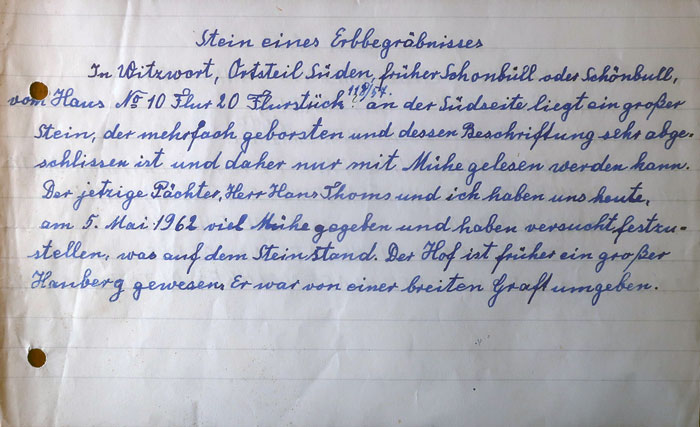 Stein eines Erbbegräbnisses
In Witzwort, Ortsteil Süden, früher Schonbüll oder Schönbull,
vom Haus No 10 Flur 20 Flurstück 118/54. an der Südseite liegt ein großer
Stein, der mehrfach geborsten und dessen Beschriftung sehr abge-
schlissen ist und daher nur mit Mühe gelesen werden kann.
Der jetzige Pächter, Herr Hans Thoms und ich haben uns heute,
am 5. Mai 1962 viel Mühe gegeben und haben versucht, festzu-
stellen, was auf dem Stein stand. Der Hof ist früher ein großer
Hauberg gewesen. Er war von einer breiten Graft umgeben.